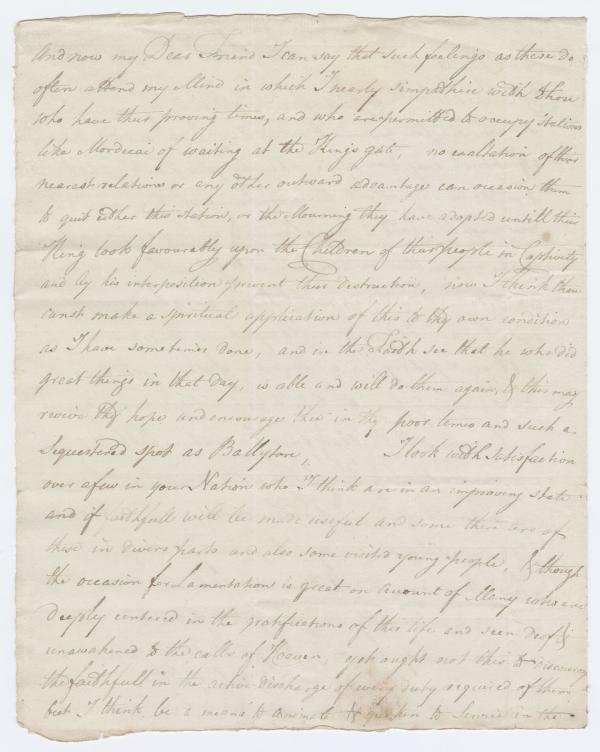 And now my Dear Friend I can say that such feelings as these do
often attend my Mind in which I nearly simpathise with those
who have their proving times, and who are permitted to occupy stations
like Mordicai of waiting at the King's gate, no exaltation of their
nearest relations or any other outward advantage can occasion them
to quit either this station, or the Mourning they have adopted untill their
King look favourably upon the Children of their people in Captivity
and by his interposition prevent their destruction, now I think thou
canst make a spiritual application of this to thy own condition
as I have sometimes done, and in the Faith see that he who did
great things in that day, is able and will do them again, & this may
revive thy hope and encourage thee in thy poor times and such a
Sequestered spot as Ballytore, I look with Satisfaction
over a few in your Nation who I think are in an improving state
and if faithfull will be made useful and some there are of
these in divers parts and also some visited young people, & though
the occasion for Lamentation is great on account of Many who are
deeply centered in the gratifications of this life and seem deaf &
unawakened to the calls of Heaven, yet ought not this to discourage
the faithfull in the active discharge of every duty required of them
but I think be a means to animate & quicken to Service in the